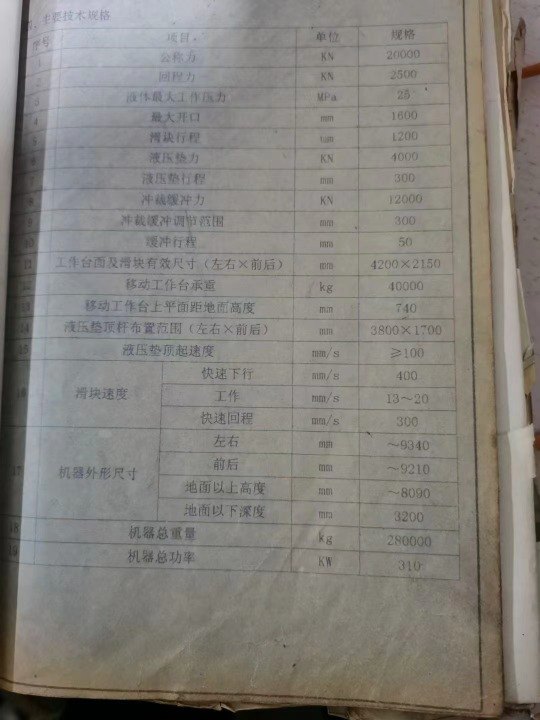 、主要技术规格
序号 项目 单位 规格
1 公称力 KN 20000
2 回程力 KN 2500
3 液体最大工作压力 MPa 25
4 最大开口 mm 1600
5 滑块行程 mm 1200
6 液压垫力 KN 4000
液压垫行程 mm 300
8 冲裁缓冲力 KN 12000
9 冲裁缓冲调节范围 mm 300
10 缓冲行程 mm 50
11 工作台面及滑块有效尺寸（左右×前后） mm 4200×2150
12 移动工作台承重 kg 40000
13 移动工作台上平面距地面高度 mm 740
14 液压垫顶杆布置范围（左右×前后） mm 3800×1700
15 液压垫顶起速度 mm/s ≥100
16 滑块速度 快速下行 mm/s 400
工作 mm/s 13～20
快速回程 mm/s 300
17 机器外形尺寸 左右 mm ～9340
前后 mm ～9210
地面以上高度 mm ～8090
地面以下深度 mm 3200
18 机器总重量 kg 280000
19 机器总功率 KW 310